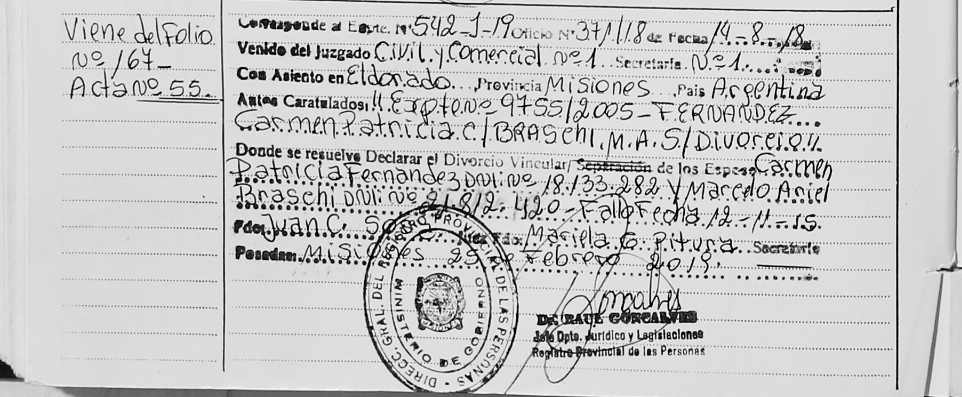 Viene del Folio
Nº 167-
Acta Nº 55.
Corresponde al Expte. Nº 542-J-19 Oficio Nº 371/18 de Fecha 14-8-18
Venido del Juzgado Civil. y Comercial Nº 1. Secretaría Nº 1.
Con Asiento en Eldorado... Provincia Misiones ...País Argentina
Autos Caratulados: "Expte Nº 9755/2005- FERNANDEZ
Carmen Patricia C/ BRASCHI, M. A. S/ Divorcio".
Donde se resuelve Declarar el Divorcio Vincular/ Separación de los Esposos Carmen
Patricia Fernandez DNI. Nº 18.133.282 y Marcelo Ariel
Braschi DNI. Nº 21.812.420- Fallo Fecha 12-11-15.
Fdo: Juan C. Juez Fdo: Mariela G. Pitura Secretario
Posadas, Misiones 25 de Febrero 2019.
DIRECC. GRAL. DEL REGISTRO PROVINCIAL DE LAS PERSONAS
MINISTERIO DE GOBIERNO
Dr. RAUL GONCALVES
Jefe Dpto. Jurídico y Legislaciones
Registro Provincial de las Personas